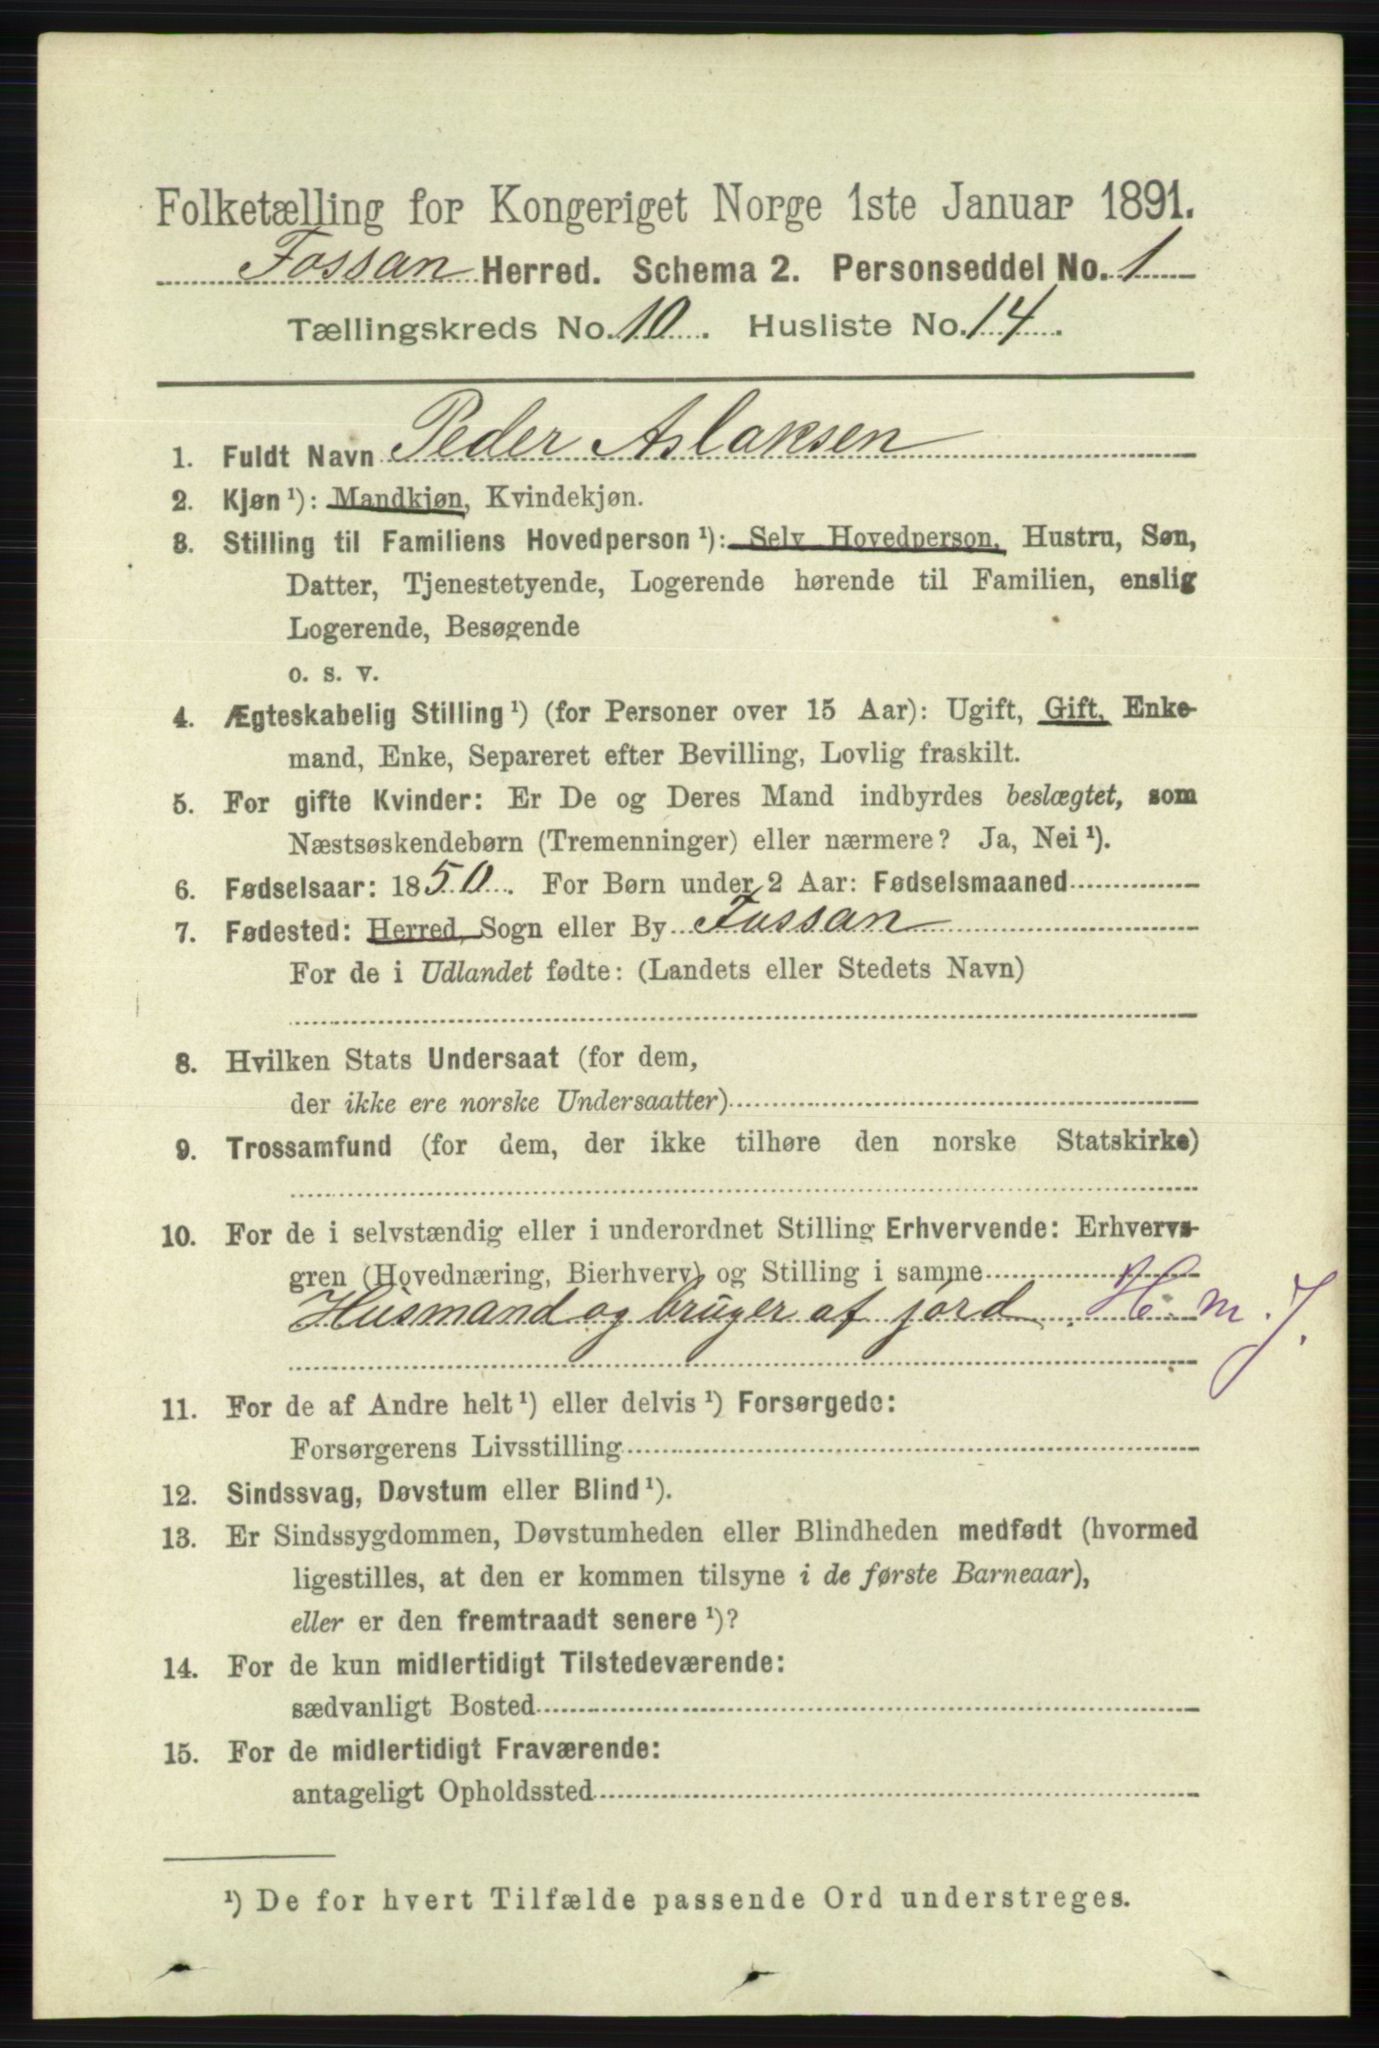 Folketælling for Kongeriget Norge 1ste Januar 1891.
Fossan Herred. Schema 2. Personseddel No. 1
Tællingskreds No. 10. Husliste No. 14.
1. Fuldt Navn Peder Aslaksen
2. Kjøn ¹): Mandkjøn, Kvindekjøn.
3. Stilling til Familiens Hovedperson ¹): Selv Hovedperson, Hustru, Søn,
Datter, Tjenestetyende, Logerende hørende til Familien, enslig
Logerende, Besøgende
o. s. v.
4. Ægteskabelig Stilling ¹) (for Personer over 15 Aar): Ugift, Gift, Enke-
mand, Enke, Separeret efter Bevilling, Lovlig fraskilt.
5. For gifte Kvinder: Er De og Deres Mand indbyrdes beslægtet, som
Næstsøskendebørn (Tremenninger) eller nærmere? Ja, Nei ¹).
6. Fødselsaar: 1850. For Børn under 2 Aar: Fødselsmaaned
7. Fødested: Herred, Sogn eller By Fossan
For de i Udlandet fødte: (Landets eller Stedets Navn)
8. Hvilken Stats Undersaat (for dem,
der ikke ere norske Undersaatter)
9. Trossamfund (for dem, der ikke tilhøre den norske Statskirke)
10. For de i selvstændig eller i underordnet Stilling Erhvervende: Erhvervs-
gren (Hovednæring, Bierhverv) og Stilling i samme
Husmand og bruger af jord H. m. J.
11. For de af Andre helt ¹) eller delvis ¹) Forsørgede:
Forsørgerens Livsstilling
12. Sindssvag, Døvstum eller Blind ¹).
13. Er Sindssygdommen, Døvstumheden eller Blindheden medfødt (hvormed
ligestilles, at den er kommen tilsyne i de første Barneaar),
eller er den fremtraadt senere ¹)?
14. For de kun midlertidigt Tilstedeværende:
sædvanligt Bosted
15. For de midlertidigt Fraværende:
antageligt Opholdssted
¹) De for hvert Tilfælde passende Ord understreges.